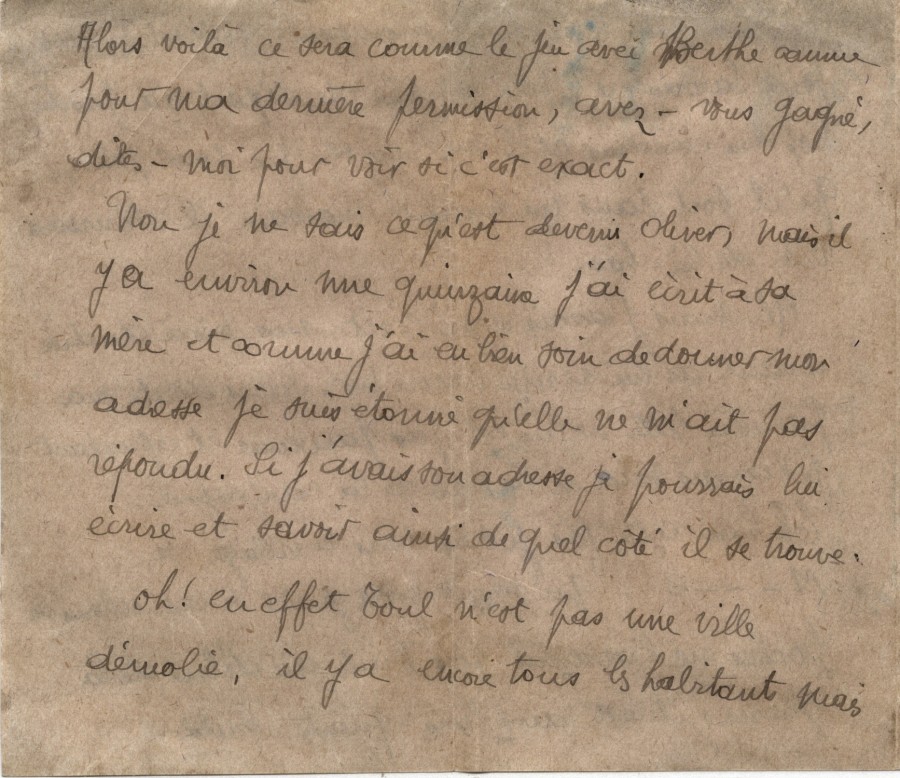 Alors voilà ce sera comme le jeu avec Berthe comme
pour ma dernière permission, avez-vous gagné,
dites-moi pour voir si c'est exact.
Non je ne sais ce qu'est devenu Oliver, mais il
y a environ une quinzaine j'ai écrit à sa
mère et comme j'ai eu bien soin de donner mon
adesse je suis étonné qu'elle ne m'ait pas
répondu. Si j'avais son adresse je pourrais lui
écrire et savoir ainsi de quel côté il se trouve.
oh! en effet Toul n'est pas une ville
démolie, il y a encore tous les habitants mais